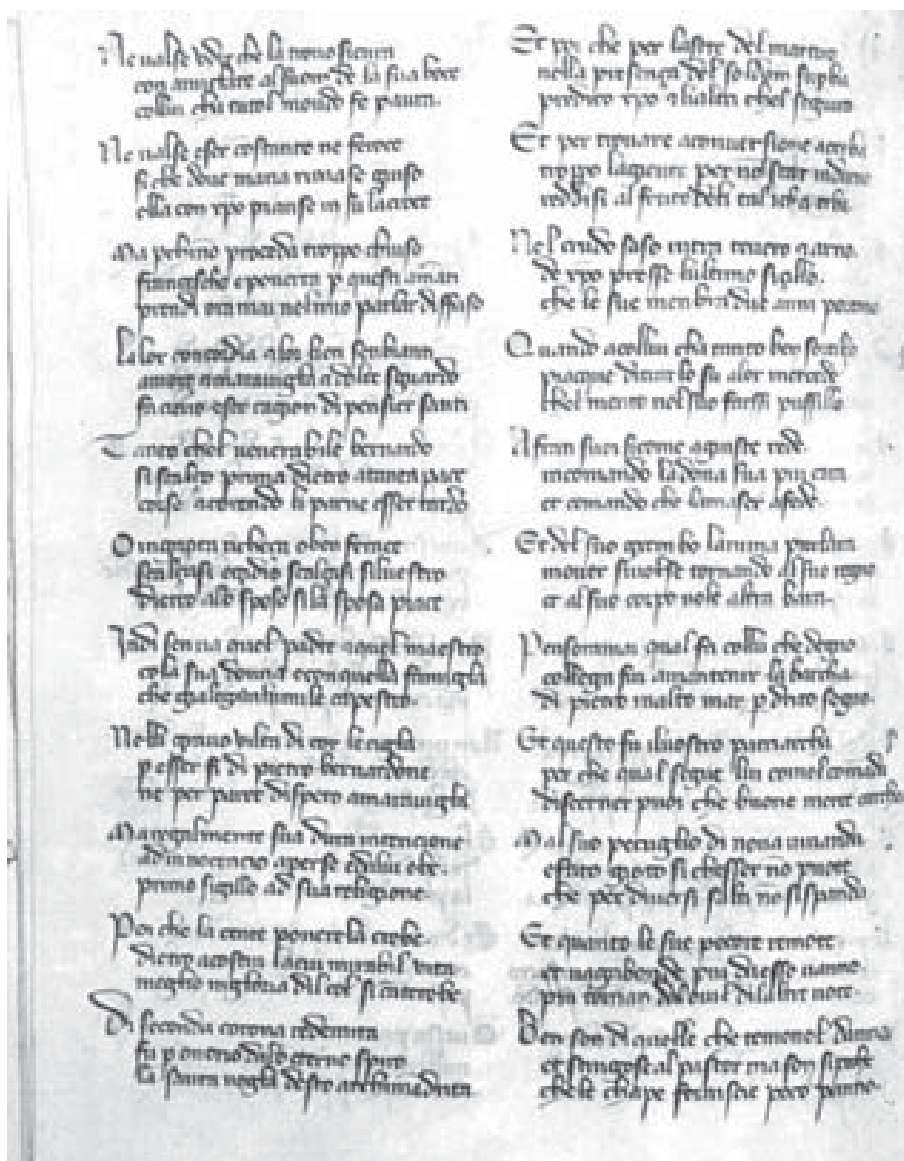 Ne ualse udir che la trouo sicura
con amiclate al suon de la sua boce
collui cha tutol mondo fe paura.
Ne ualse esser costante ne feroce
si che doue maria rimase giuso
ella con xpo pianse in su la croce
Ma perchino proceda troppo chiuso
francescho e pouerta p questi amati
prendi ora mai nel mio parlar diffuso
La lor concordia e lor lieti senbianti
amore a marauiglia e dolce sguardo
facieno esser cagion di pensier santi
Tanto chel uenerabile bernardo
si scalzo prima dietro a tanta pace
corse e correndo li parue esser tardo
O ignota richeça o ben ferace
scalçasi egidio scalçasi siluestro
dietro alo sposo si la sposa piace
Indi senua quel padre e quel maestro
co la sua donna e con quella famiglia
che gia legaua lumile capestro.
Ne li grauo vilta di cor le ciglia
p esser fi di pietro bernardone
ne per parer dispeto a marauiglia
Ma regalmente sua dura intencione
ad innocencio aperse e da lui ebe
primo sigillo ad sua religione.
Poi che la gente pouerella crebe
dietro a costui la cui mirabil vita
meglio in gloria del ciel si canterebe
Di seconda corona redemita
fu p onorio dalo eterno spiro
la santa uoglia desto archimadrita
Et poi che per la sete del martiro
nella presença del soldan superba
predico xpo e li altri chel seguiro
Et per trouare a conuersione acerba
troppo la gente per no star indarno
reddisi al frutto de italica erba
Nel crudo saso intra teuero e arno.
de xpo presse lultimo sigillo.
che le sue menbra due anni portarno
Quando a collui cha tanto ben sortillo
piacque di trar lo su a lor mercede
chel merito nel suo farssi pussillo
A frati suoi si come a giuste rede.
racomando la dona sua piu cara
et comando che lamaser a fede.
Et del suo grembo lanima preclara
mouer si uolse tornando al suo regno
et al suo corpo nole altra bara.
Pensomai qual fu collui che degno
collega fu a mantener la barcha
di pietro in alto mar p drito segno.
Et questo fu il nostro patriarcha
per che qual segue lui comel comada
discerner puoi che buone merce carcha
Mal suo peculglio di noua uiuanda
e fatto goto si chesser no puote
che per diuersi salti no si spanda
Et quanto le sue pecore remote
et uagabonde piu da esso uanno
piu tornan al ouil di latte uote.
Ben son di quelle che temonol danno
et stringose al pastor ma son si poche
che le chape fornisce poco panno.